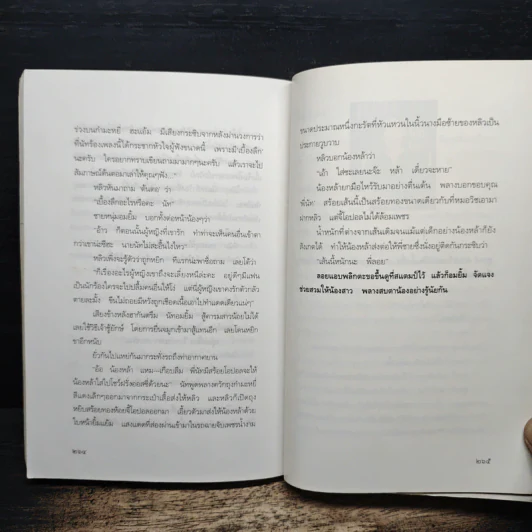 ร่วงบนกำมะหยี่ ฮะแอ้ม มีเสียงกระซิบจากหลังม่านวงการว่า
ที่นักร้องเพลงนี้ได้กระชากหัวใจผู้ฟังขนาดนี้ เพราะมีเบื้องลึก
นะครับ ใครอยากทราบเขียนถามมามากๆนะครับ แล้วเราจะไป
สัมภาษณ์ต้นตอมาเล่าให้คุณๆฟัง"
หลิวหันมาถาม ต้นตอ ว่า
"เบื้องลึกอะไรหรือคะ นัท"
ชายหนุ่มอมยิ้ม บอกทั้งต่อหน้าน้องๆว่า
"อ้าว ก็ตอนนั้นผู้หญิงที่เรารัก ทำท่าจะเห็นคนอื่นเข้าตา
กว่าเรานี่ฮะ นายนัทไม่สะอื้นไงไหว"
หลิวเพิ่งจะรู้ตัวว่าถูกหยิก ทีแรกน่ะเพราะซึ้งถาม เลยได้ว่า
"ก็เรื่องอะไรผู้หญิงเขาถึงจะเลี่ยงหนีล่ะคะ อยู่ดีๆมีแฟน
เป็นนักร้องใครจะไปปลื้มคนอื่นได้ไง แต่นี่ผู้หญิงเขาคงรักตัวกลัว
ตายละมั้ง ขืนไม่ถอยมีหวังถูกเชือดเนื้อเอาไปทำแดดเดียวแน่ๆ"
เสียงข้างหลังฮากันครืน นัทอมยิ้ม สู้คารมสาวน้อยไม่ได้
เลยใช้วิธีเจ้าชู้ยักษ์ โดยการยื่นจมูกเข้ามาสู้แทนอีก เลยโดนหยิก
ขาอีกหนับ
ยั่วกันไปแหย่กันมากระทั่งรถถึงท่าอากาศยาน
"อ้อ น้องหล้า แหม—เกือบลืม พี่นัทมีสร้อยโอปอลจะให้
น้องหล้าใส่ไปโชว์ฝรั่งออสซี่ด้วยนะ" นัทพูดพลางควักถุงกำมะหยี่
สีแดงเล็กๆออกมาจากกระเป๋าเสื้อส่งให้หลิว และหลิวก็เปิดถุง
หยิบสร้อยทองห้อยจี้โอปอลออกมา เอี้ยวตัวมาส่งให้น้องหล้าด้วย
ใบหน้ายิ้มแย้ม แสงแดดที่ส่องผ่านเข้ามาในรถฉายจับเพชรน้ำงาม
๒๖๔
ขนาดประมาณหนึ่งกะรัตที่หัวแหวนในนิ้วนางมือซ้ายของหลิวเป็น
ประกายวูบวาบ
หลิวบอกน้องหล้าว่า
"เอ้า ใส่ซะเลยนะเจ๊ะ หล้า เดี๋ยวจะหาย"
น้องหล้ายกมือไหว้รับมาอย่างตื่นเต้น พลางบอกขอบคุณ
พี่นัท สร้อยเส้นนี้เป็นสร้อยทองขนาดเดียวกับที่หมอวิชเอามา
ฝากหล้า แต่จี้โอปอลไม่ได้ล้อมเพชร
น้ำหนักที่ต่างจากเส้นเดิมจนแม้แต่เด็กอย่างน้องหล้าก็ยัง
สังเกตได้ ทำให้น้องหล้าส่งต่อให้พี่ชายซึ่งนั่งอยู่ติดกันกระซิบว่า
"เส้นนี้หนักนะ พี่ลอย"
ลอยแอบพลิกตะขอขึ้นดูที่สแตมป์ไว้ แล้วก็อมยิ้ม จัดแจง
ช่วยสวมให้น้องสาว พลางสบตาน้องอย่างรู้นัยกัน
๒๖๕